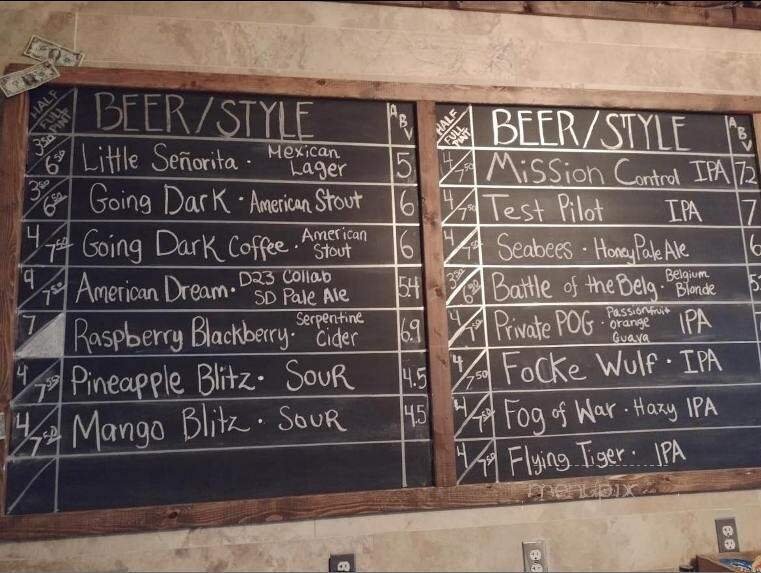 HALF FULL PINT BEER/STYLE ABV
3.50 6.50 Little Señorita · Mexican Lager 5
3.50 6.50 Going Dark · American Stout 6
4 7.50 Going Dark Coffee · American Stout 6
7.50 American Dream · D23 Collab SD Pale Ale 5.4
7 Raspberry Blackberry · Serpentine Cider 6.9
4 7.50 Pineapple Blitz · Sour 4.5
4 7.50 Mango Blitz · Sour 4.5
HALF FULL PINT BEER/STYLE ABV
4 7.50 Mission Control IPA 7.2
4 7.50 Test Pilot IPA 7
4 7.50 Seabees · Honey Pale Ale
3.50 6.50 Battle of the Belg · Belgium Blonde
4 7.50 Private POG · Passionfruit Orange Guava IPA
4 7.50 Focke Wulf · IPA
4 7.50 Fog of War · Hazy IPA
4 7.50 Flying Tiger · IPA
menupix